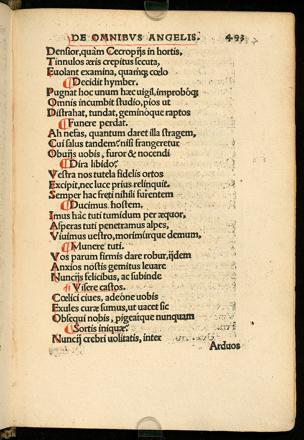 DE OMNIBVS ANGELIS. 493
Densior, quàm Cecropijs in hortis,
Tinnulos æris crepitus secuta,
Euolant examina, quamq; cœlo
¶ Decidit hymber.
Pugnat hoc unum hæc uigil, improbóq;
Omnis incumbit studio, pios ut
Distrahat, tundat, geminóque raptos
¶ Funere perdat.
Ah nefas, quantum daret illa stragem,
Cui salus tandem? nisi frangeretur
Obuijs uobis, furor & nocendi
¶ Dira libido?
Vestra nos tutela fidelis ortos
Excipit, nec luce prius relinquit.
Semper hac freti nihili furentem
¶ Ducimus hostem.
Imus hac tuti tumidum per æquor,
Asperas tuti penetramus alpes,
Viuimus uestro, morimúrque demum,
¶ Munere tuti.
Vos parum firmis dare robur, ijdem
Anxios nostis gemitus leuare
Nuncijs felicibus, ac subinde
¶ Visere castos.
Cœlici ciues, adeóne uobis
Exules curæ sumus, ut uacet sic
Obsequi nobis, pigeatque nunquam
¶ Sortis iniquæ?
Nuncij crebri uolitatis, inter
Arduos